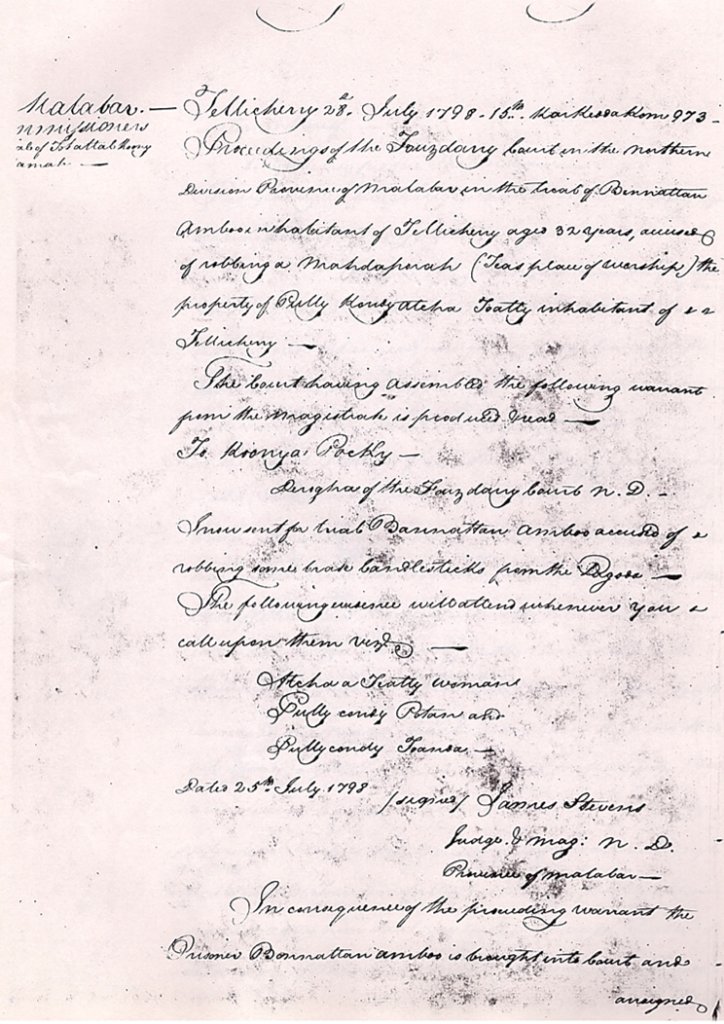 Malabar. —
Tellicherry 28th July 1798 - 15th Karkedakom 973 -
Proceedings of the Fouzdary Court in the northern
Division Province of Malabar in the trial of Bonnattan
Amboo inhabitant of Tellicherry aged 32 years, accused
of robbing a Mahdaporah (Teas place of worship) the
property of Pully Kondy Atcha Teatty inhabitant of
Tellicherry —
The Court having assembled the following warrant
from the Magistrate is produced & read —
To Koonya Pocky —
Derogha of the Fouzdary Court N. D. —
I now send for trial Bannattan Amboo accused of
robbing some brass Candlesticks from the Pagoda —
The following evidence will attend whenever you
call upon them viz —
Atcha a Teatty woman
Pully condy Potan and
Pully condy Tanda —
Dated 25th July 1798
/signed/ James Stevens
Judge & Mag: N. D.
Province of Malabar —
In consequence of the preceeding warrant the
Prisoner Bonnattan Amboo is brought into Court and
arraigned